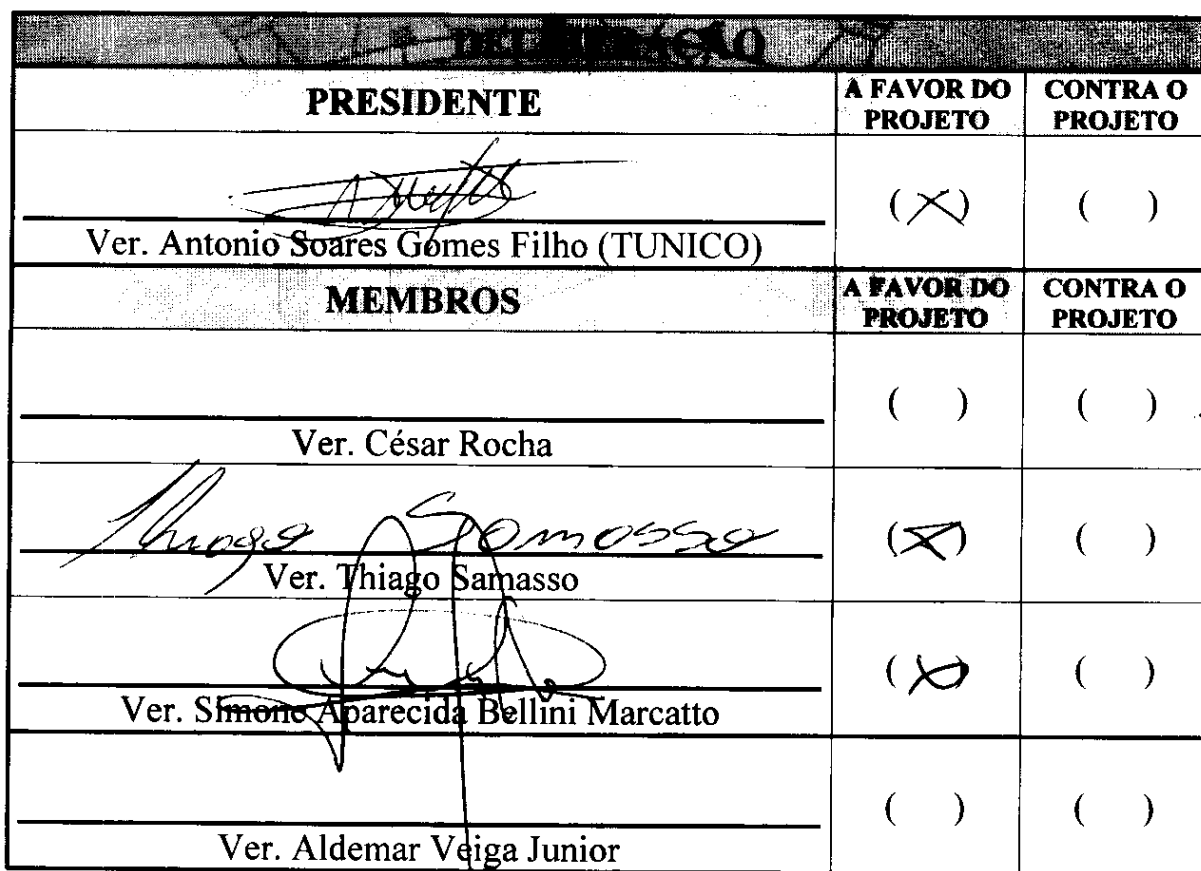 DELIBERAÇÃO
PRESIDENTE
A FAVOR DO PROJETO
CONTRA O PROJETO
(X)
( )
Ver. Antonio Soares Gomes Filho (TUNICO)
MEMBROS
A FAVOR DO PROJETO
CONTRA O PROJETO
( )
( )
Ver. César Rocha
Thiago Samasso
(X)
( )
Ver. Thiago Samasso
(X)
( )
Ver. Simone Aparecida Bellini Marcatto
( )
( )
Ver. Aldemar Veiga Junior